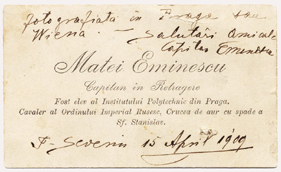 fotografiata în Praga sau
Wiena. — Salutări amicale
Capitan Eminescu
Matei Eminescu
Capetan în Retragere
Fost elev al Institutului Polytechnic din Praga.
Cavaler al Ordinului Imperial Rusesc, Crucea de aur cu spade a
Sf. Stanislav.
T-Severin 15 April 1909